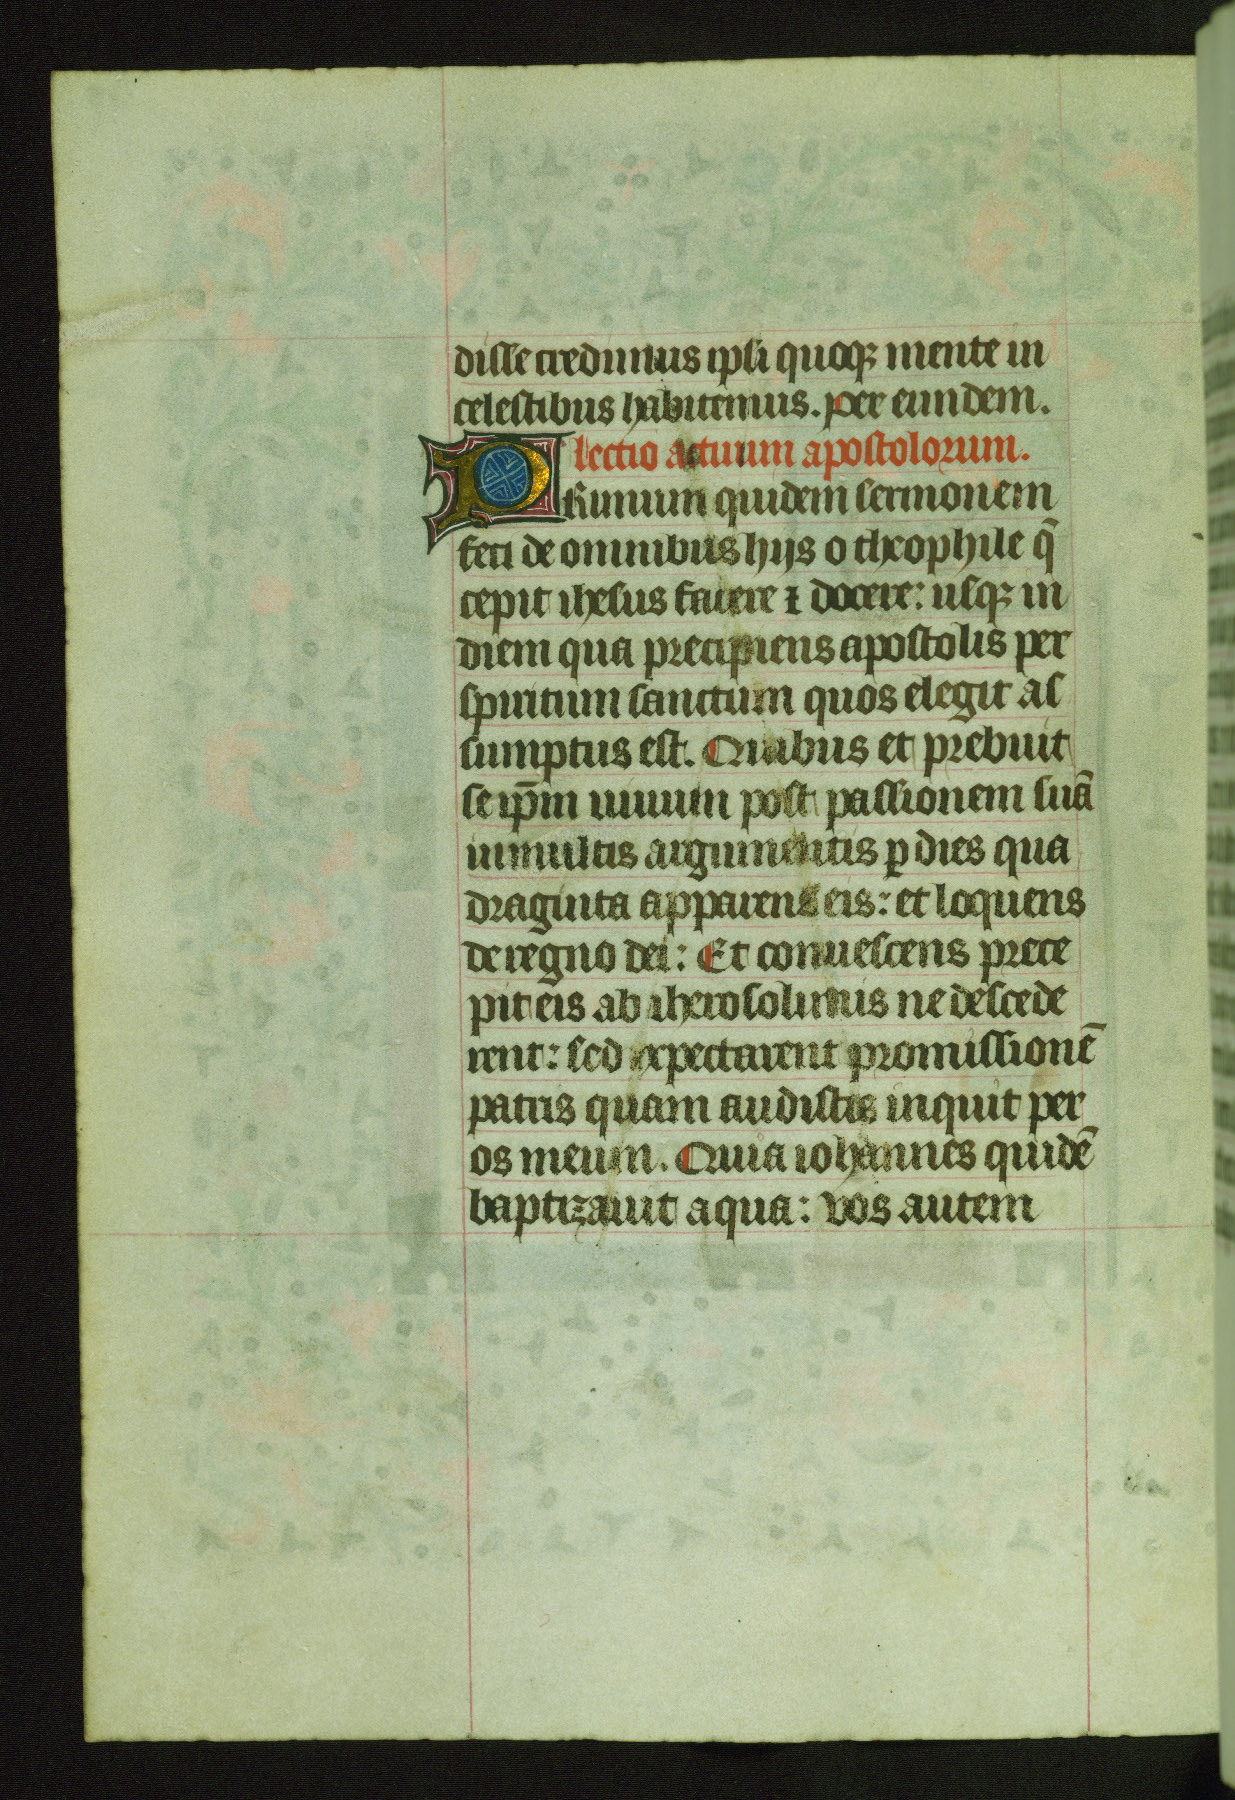 disse credimus ipsi quoqꝫ mente in
celestibus habitemus. per eundem.
lectio actuum apostolorum.
PRimum quidem sermonem
feci de omnibus hijs o theophile q̄
cepit ihesus facere ⁊ docere: usqꝫ in
diem qua precipiens apostolis per
spiritum sanctum quos elegit as
sumptus est. Quibus et prebuit
se ip̄m uiuum post passionem suā
in multis argumentis ꝑ dies qua
draginta apparens eis: et loquens
de regno dei: Et conuescens prece
pit eis ab iherosolimis ne descede
rent: sed expectarent promissionē
patris quam audistis inquit per
os meum. Quia iohannes quidē
baptizauit aqua: vos autem